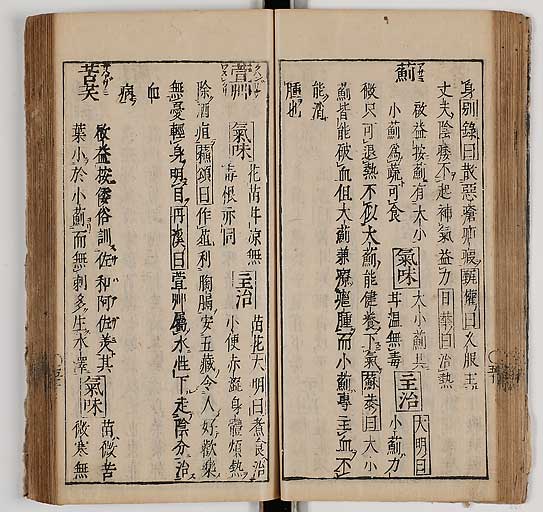 身別錄曰散惡瘡疥瘕甄權曰久服主
丈夫陰痿不起神氣益力日華曰治熱
薊
啟益按薊有大小
小薊為蔬可食
氣味
大小薊共
甘溫無毒
主治
大明曰
小薊力
微只可退熱不似大薊能健養下氣蘇恭曰大小
薊皆能破血但大薊兼療癰腫而小薊專主血不
能消
腫也
萱草
氣味
花苗甘涼無
毒根亦同
主治
苗花大明曰煮食治
小便赤澁身體煩熱
除酒疸蘇頌曰作葅利胸膈安五藏令人好歡樂
無憂輕身明目丹溪曰萱草屬水性下走陰分治
血
病
苦芺
啟益按倭俗訓佐和阿佐美其
葉小於小薊而無刺多生水澤
氣味
苗微苦
微寒無